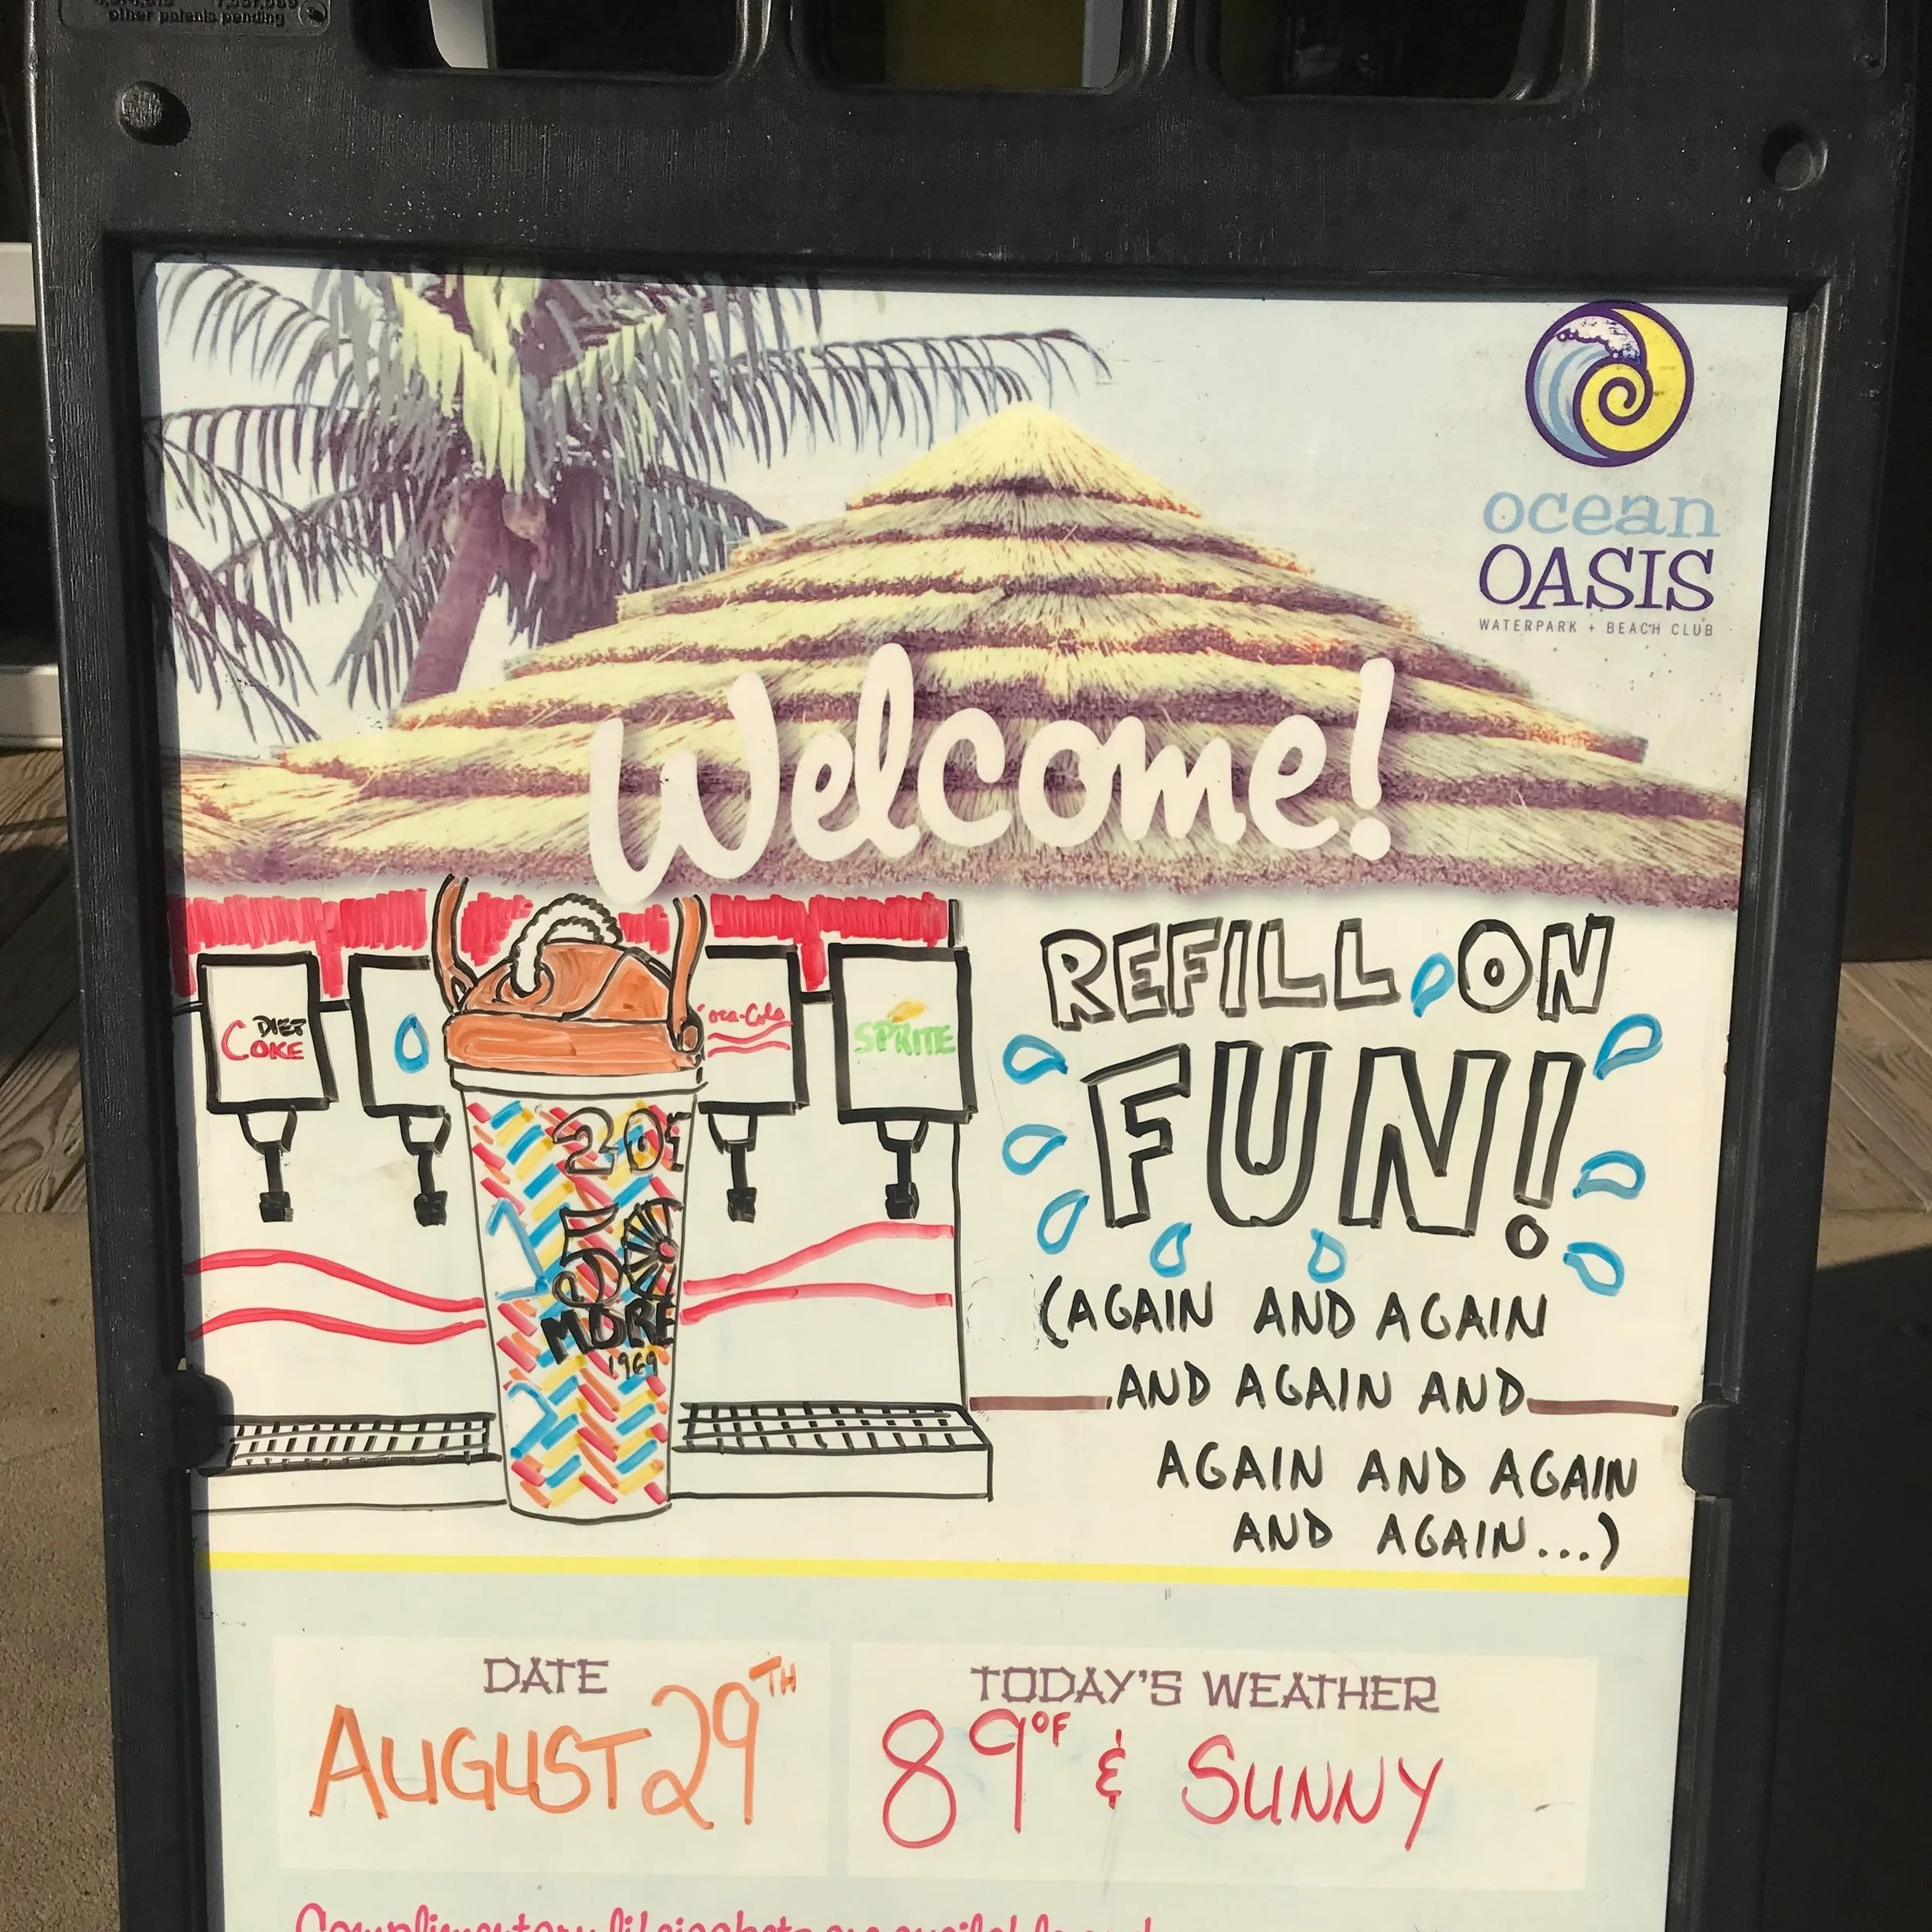 other patents pending
ocean
OASIS
WATERPARK + BEACH CLUB
Welcome!
REFILL ON
FUN!
(AGAIN AND AGAIN
AND AGAIN AND
AGAIN AND AGAIN
AND AGAIN...)
DIET
COKE
Coca-Cola
SPRITE
20
50
MORE
1969
DATE
AUGUST 29TH
TODAY'S WEATHER
89°F & SUNNY